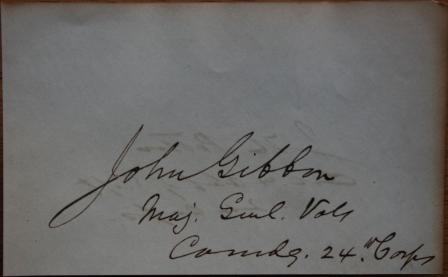 John Gibbon
Maj. Genl. Vols
Comdg. 24th Corps